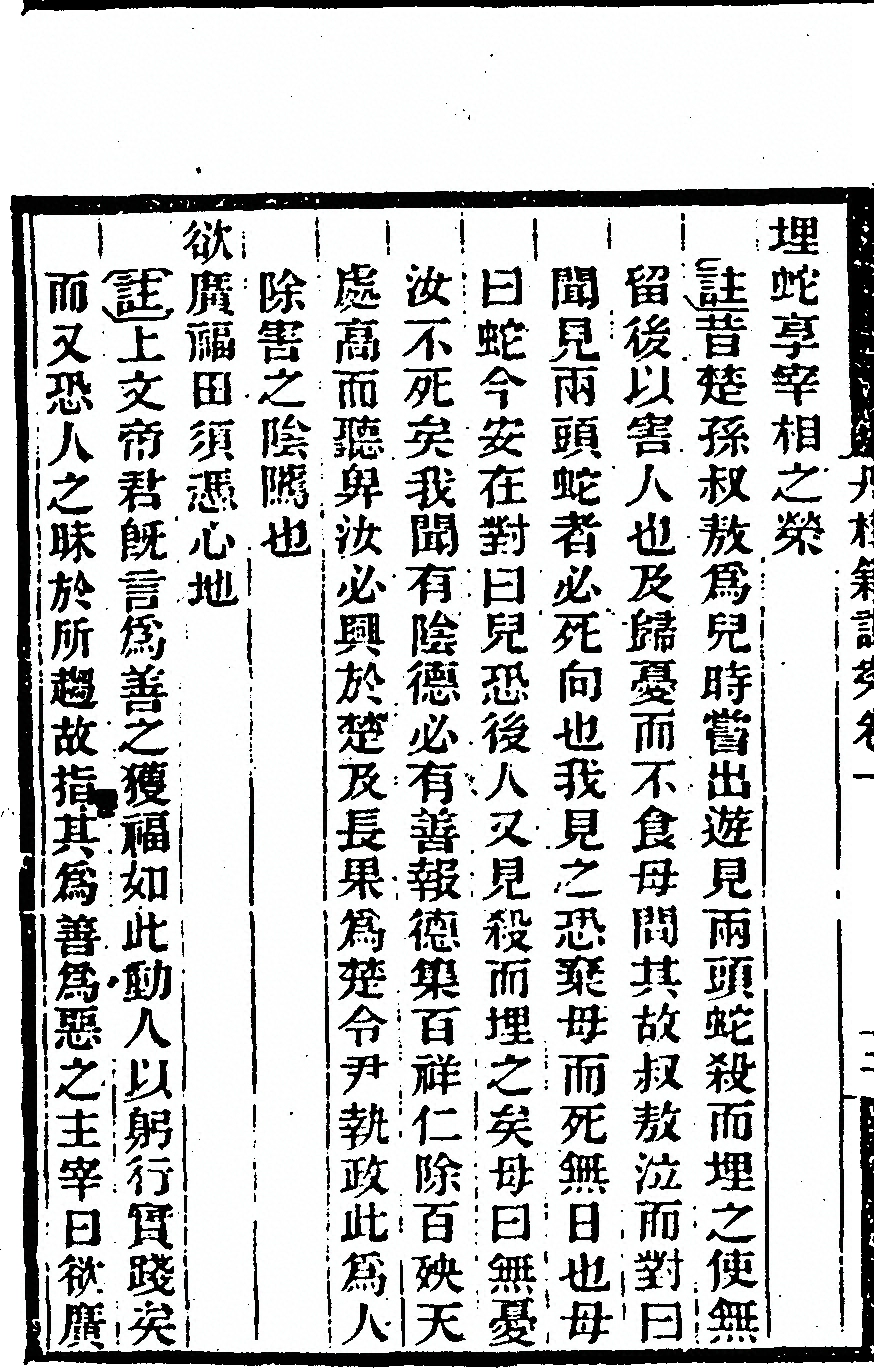 埋蛇享宰相之榮
註昔楚孫叔敖爲兒時嘗出遊見兩頭蛇殺而埋之使無
留後以害人也及歸憂而不食母問其故叔敖泣而對曰
聞見兩頭蛇者必死向也我見之恐棄母而死無日也母
曰蛇今安在對曰兒恐後人又見殺而埋之矣母曰無憂
汝不死矣我聞有陰德必有善報德集百祥仁除百殃天
處高而聽卑汝必興於楚及長果爲楚令尹執政此爲人
除害之陰隲也
欲廣福田須憑心地
註上文帝君旣言爲善之獲福如此動人以躬行實踐矣
而又恐人之昧於所趨故指其爲善爲惡之主宰曰欲廣